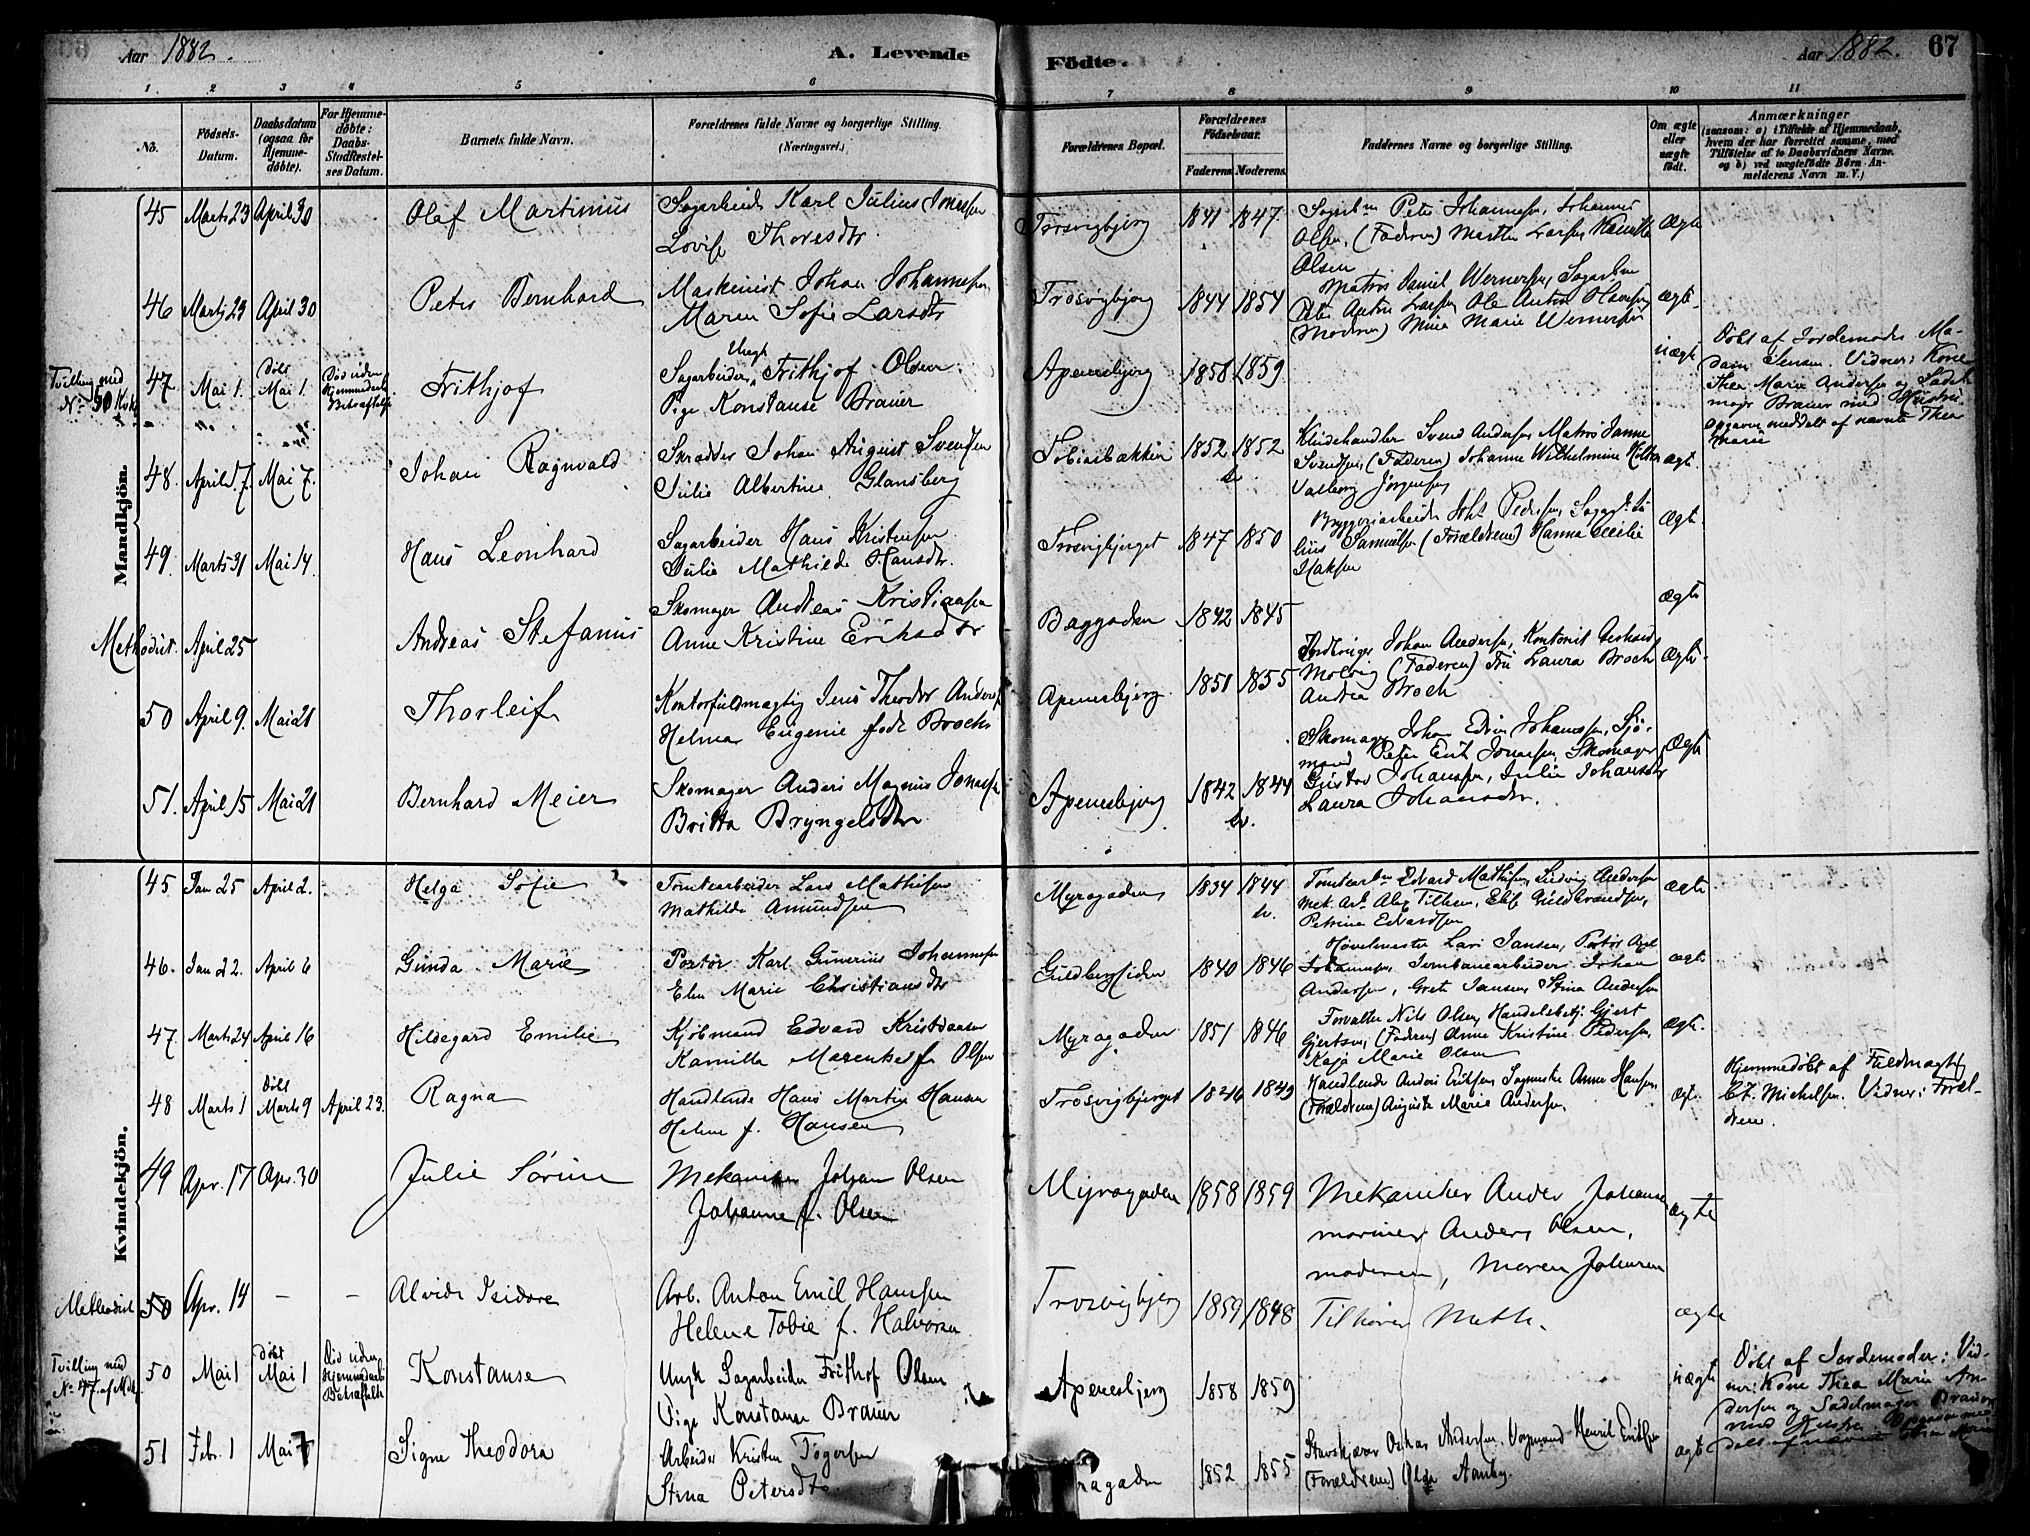 66 Aar 1882. A. Levende Födte. Aar 1882. 67
1 2 3 4 5 6 7 8 9 10 11
No. Födsels-Datum. Daabsdatum (ogsaa for Hjemmedöbte). For Hjemmedöbte: Daabs-Stadfæstelses Datum. Barnets fulde Navn. Forældrenes fulde Navne og borgerlige Stilling. (Næringsvei.) Forældrenes Bopæl. Forældrenes Födselsaar. Faderens Moderens Faddernes Navne og borgerlige Stilling. Om ægte eller uægte født. Anmærkninger (saasom: a) i Tilfælde af Hjemmedaab, hvem der har forrettet samme, med Tilføielse af to Daabsvidners Navne. og b) ved uægtefødte Börn Anmelderens Navn m. V.)
Mandkjön.
45 Marts 23 April 30 Olaf Martinius Sagarbeid. Karl Julius Jonassen
Lovise Thoresdtr. Trosvigbjerg 1841 1847 Sagarbm Peter Johannesen, Johannes
Olsen, (Faderen) Marthe Larsen Kamilla
Olsen Ægte
46 Marts 23 April 30 Peter Bernhard Maskinist Johan Johannesen
Maren Sofie Larsdtr Trosvigbjerg 1844 1854 Matros Daniel Wernersen, Sagarbm
Peter Anton Larsen Ole Anton Hansen
(Moderen) Mina Marie Wernersen ægte
Tvilling med
No 50 Kvk
47 Mai 1. Döbt
Mai 1 Död uden
Hjemmedaabs
Bekræftelse Frithjof Ungk
Sagarbeider Frithjof Olsen
Pige Konstanse Brauer Apenesbjerg 1858 1859 uægte Döbt af Jordemoder Ma-
dam Jensen. Vidner: Kone
Thea Marie Andersen og Sadel-
mager Brauer med Hustru
Opgaven meddelt af nævnte Thea
Marie
48. April 17. Mai 7. Johan Ragnvald Skrædder Johan August Svendsen
Julie Albertine Glansberg Tobiasbakken 1852 1852
sv. Klædehandler Svend Andersen, Matros Janne
Svendsen, (Faderen) Johanne Wilhelmine
Valborg Jørgensen ægte
49. Marts 31 Mai 14. Hans Leonhard Sagarbeider Hans Kristensen
Julie Mathilde Hansdtr. Trosvigbjerget 1847 1850 Bryggeriarbeider Johs Pedersen, Ju-
lius Samuelsen (Forældrene) Hanna Cecilie
Isaksen Ægte
Methodist. April 25 Andreas Stefanus Skomager Andreas Kristiansen
Anne Kristine Eriksdtr Baggaden 1842 1845 ægte
50 April 9. Mai 21 Thorleif Kontorfuldmægtig Jens Theodor Anders
Helma Eugenie født Broch Apenesbjerg 1851 1855 Johan Andersen, Kontorist Gerhard
Molvig (Faderen) Fru Laura Broch
Andrea Broch Ægte
51. April 15 Mai 21 Bernhard Meier Skomager Anders Magnus Jonasse
Britta Bryngelsdtr. Apenesbjerg 1842 1844
sv. Skomager Johan Edvin Johansen, Sjø-
mand Peter Emt Jonassen Skomager
Gustav Johansen, Julie Johansdtr
Laura Johansdtr. Ægte
Kvindekjön.
45 Jan 25 April 2. Helga Sofie Tomtearbeider Lars Mathisen
Mathilde Amundsen Myragaden 1834 1844
sv. Tomtearbm Edvard Mathisen, Ludvig Andersen
Mek. Arb. Alex Tillsen, Elise Guldbrandsen,
Petrine Edvardsen ægte
46. Jan 22. April 6 Gunda Marie Portør Karl Gunerius Johannesen
Elen Marie Christiansdtr Guldbergsiden 1840 1846 Høvelmester Lars Jansen, Portør Axel
Johannesen, Jernbanearbeider Johan
Andersen, Grete Jansen, Stina Andersen ægte
47. Marts 24 April 16 Hildegard Emilie Kjöbmand Edvard Kristiansen
Kamilla Marenke f. Olsen Myragaden 1851 1846 Forvalter Nils Olsen, Handelsbetj. Gjert
Gjertsen, (Faderen) Anne Kristine Pedersen,
Kaja Marie Olsen ægte.
48 Marts 1 Döbt
Marts 9 April 23. Ragna Handlende Hans Martin Hansen
Helene f. Hansen Trosvigbjerget 1846 1849 Handlende Anders Eriksen, Sagmester Anne Hansen
(Forældrene) Auguste Marie Andersen. ægte Hjemmedöbt af Fuldmægtig
Ch. Michelsen. Vidner: Foræl-
drene.
49 Apr. 17 Apr. 30 Julie Sörine Mekaniker Johan Olsen
Johanne f. Olsen Myragaden 1858 1859 Mekaniker Anders Johanse
mariner Anders Olsen,
moderen, Maren Johansen ægte
Methodist 50 Apr. 14 — — Alvide Isidore Arb. Anton Emil Hanssen
Helene Tobie f. Halvorsen Trosvigbjerg 1859 1848 Tilhører Meth. ægte
Tvilling med
No 47. af Mdk.
50 Mai 1 Döbt
Mai 1 Död uden
Hjemmedaabs
Bekræftelse Konstanse Ungk Sagarbeider Frithof Olsen
Pige Konstanse Brauer Apenesbjerg 1858 1859 uægte Döbt af Jordemoder: Vid-
ner: Kone Thea Marie An-
dersen og Sadelmager Brauer
med Hustru Opgaven med-
delt af nævnte Thea Marie
51 Febr. 1 Mai 7 Signe Theodora Arbeider Kristen Togersen
Stina Petersdtr ragaden 1852 1855 Oskar Andersen, Henrik Eriksen
(Forældrene) Olga Aamby. ægte